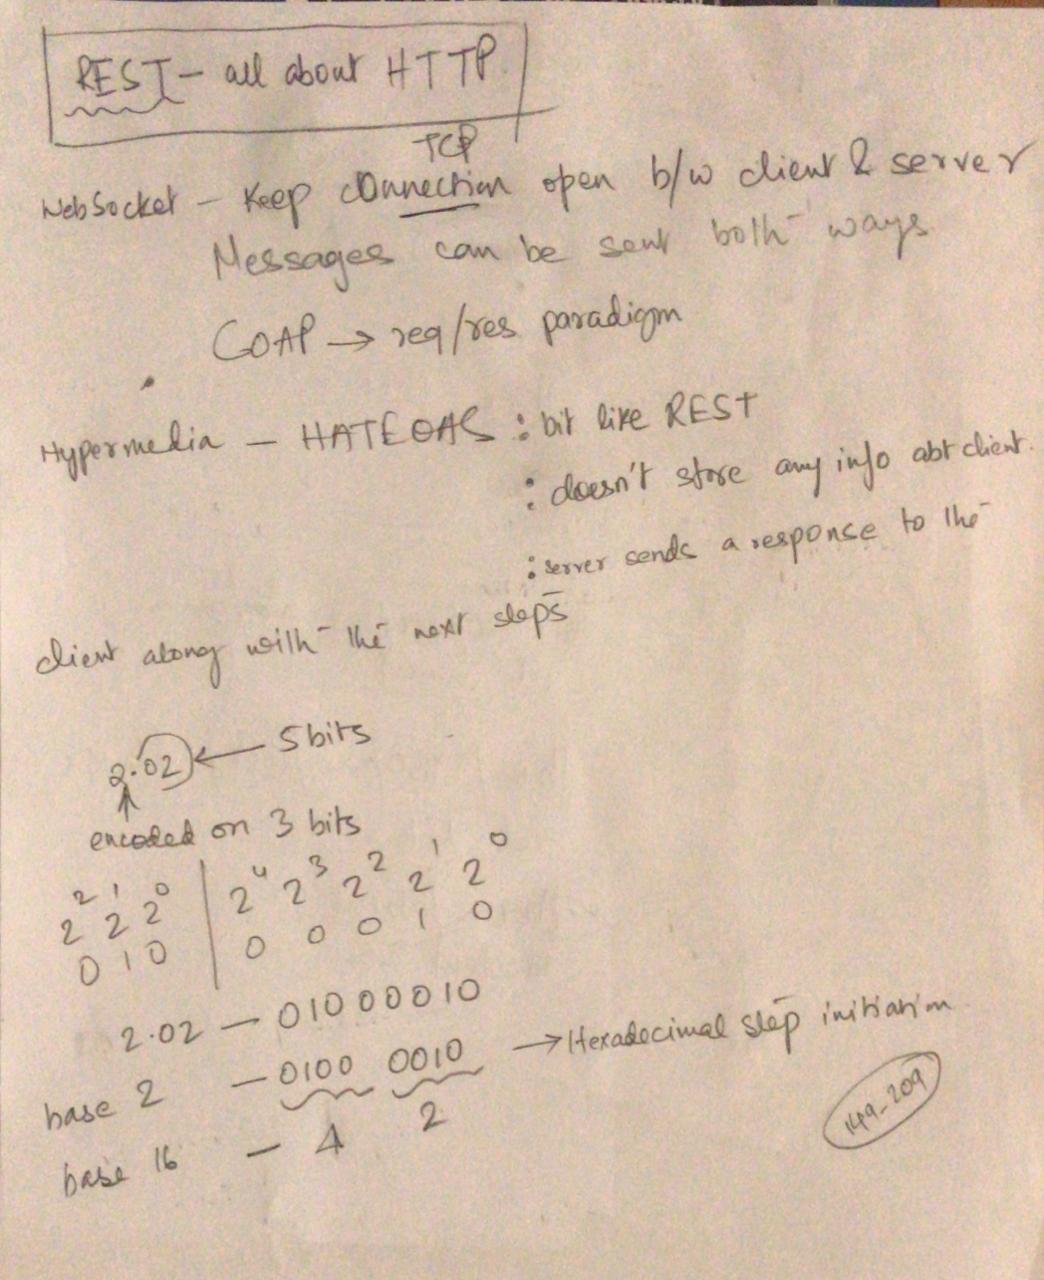 REST - all about HTTP
TCP
WebSocket - Keep connection open b/w client & server
Messages can be sent both ways
COAP → req/res paradigm
Hypermedia - HATEOAS : bit like REST
: doesn't store any info abt client.
: server sends a response to the
client along with the next steps
2.02 ← 5 bits
encoded on 3 bits
2² 2¹ 2⁰ | 2⁴ 2³ 2² 2¹ 2⁰
0 1 0 | 0 0 0 1 0
2.02 - 01000010
base 2 - 0100 0010 → Hexadecimal step initiation
base 16 - 4 2
149_209